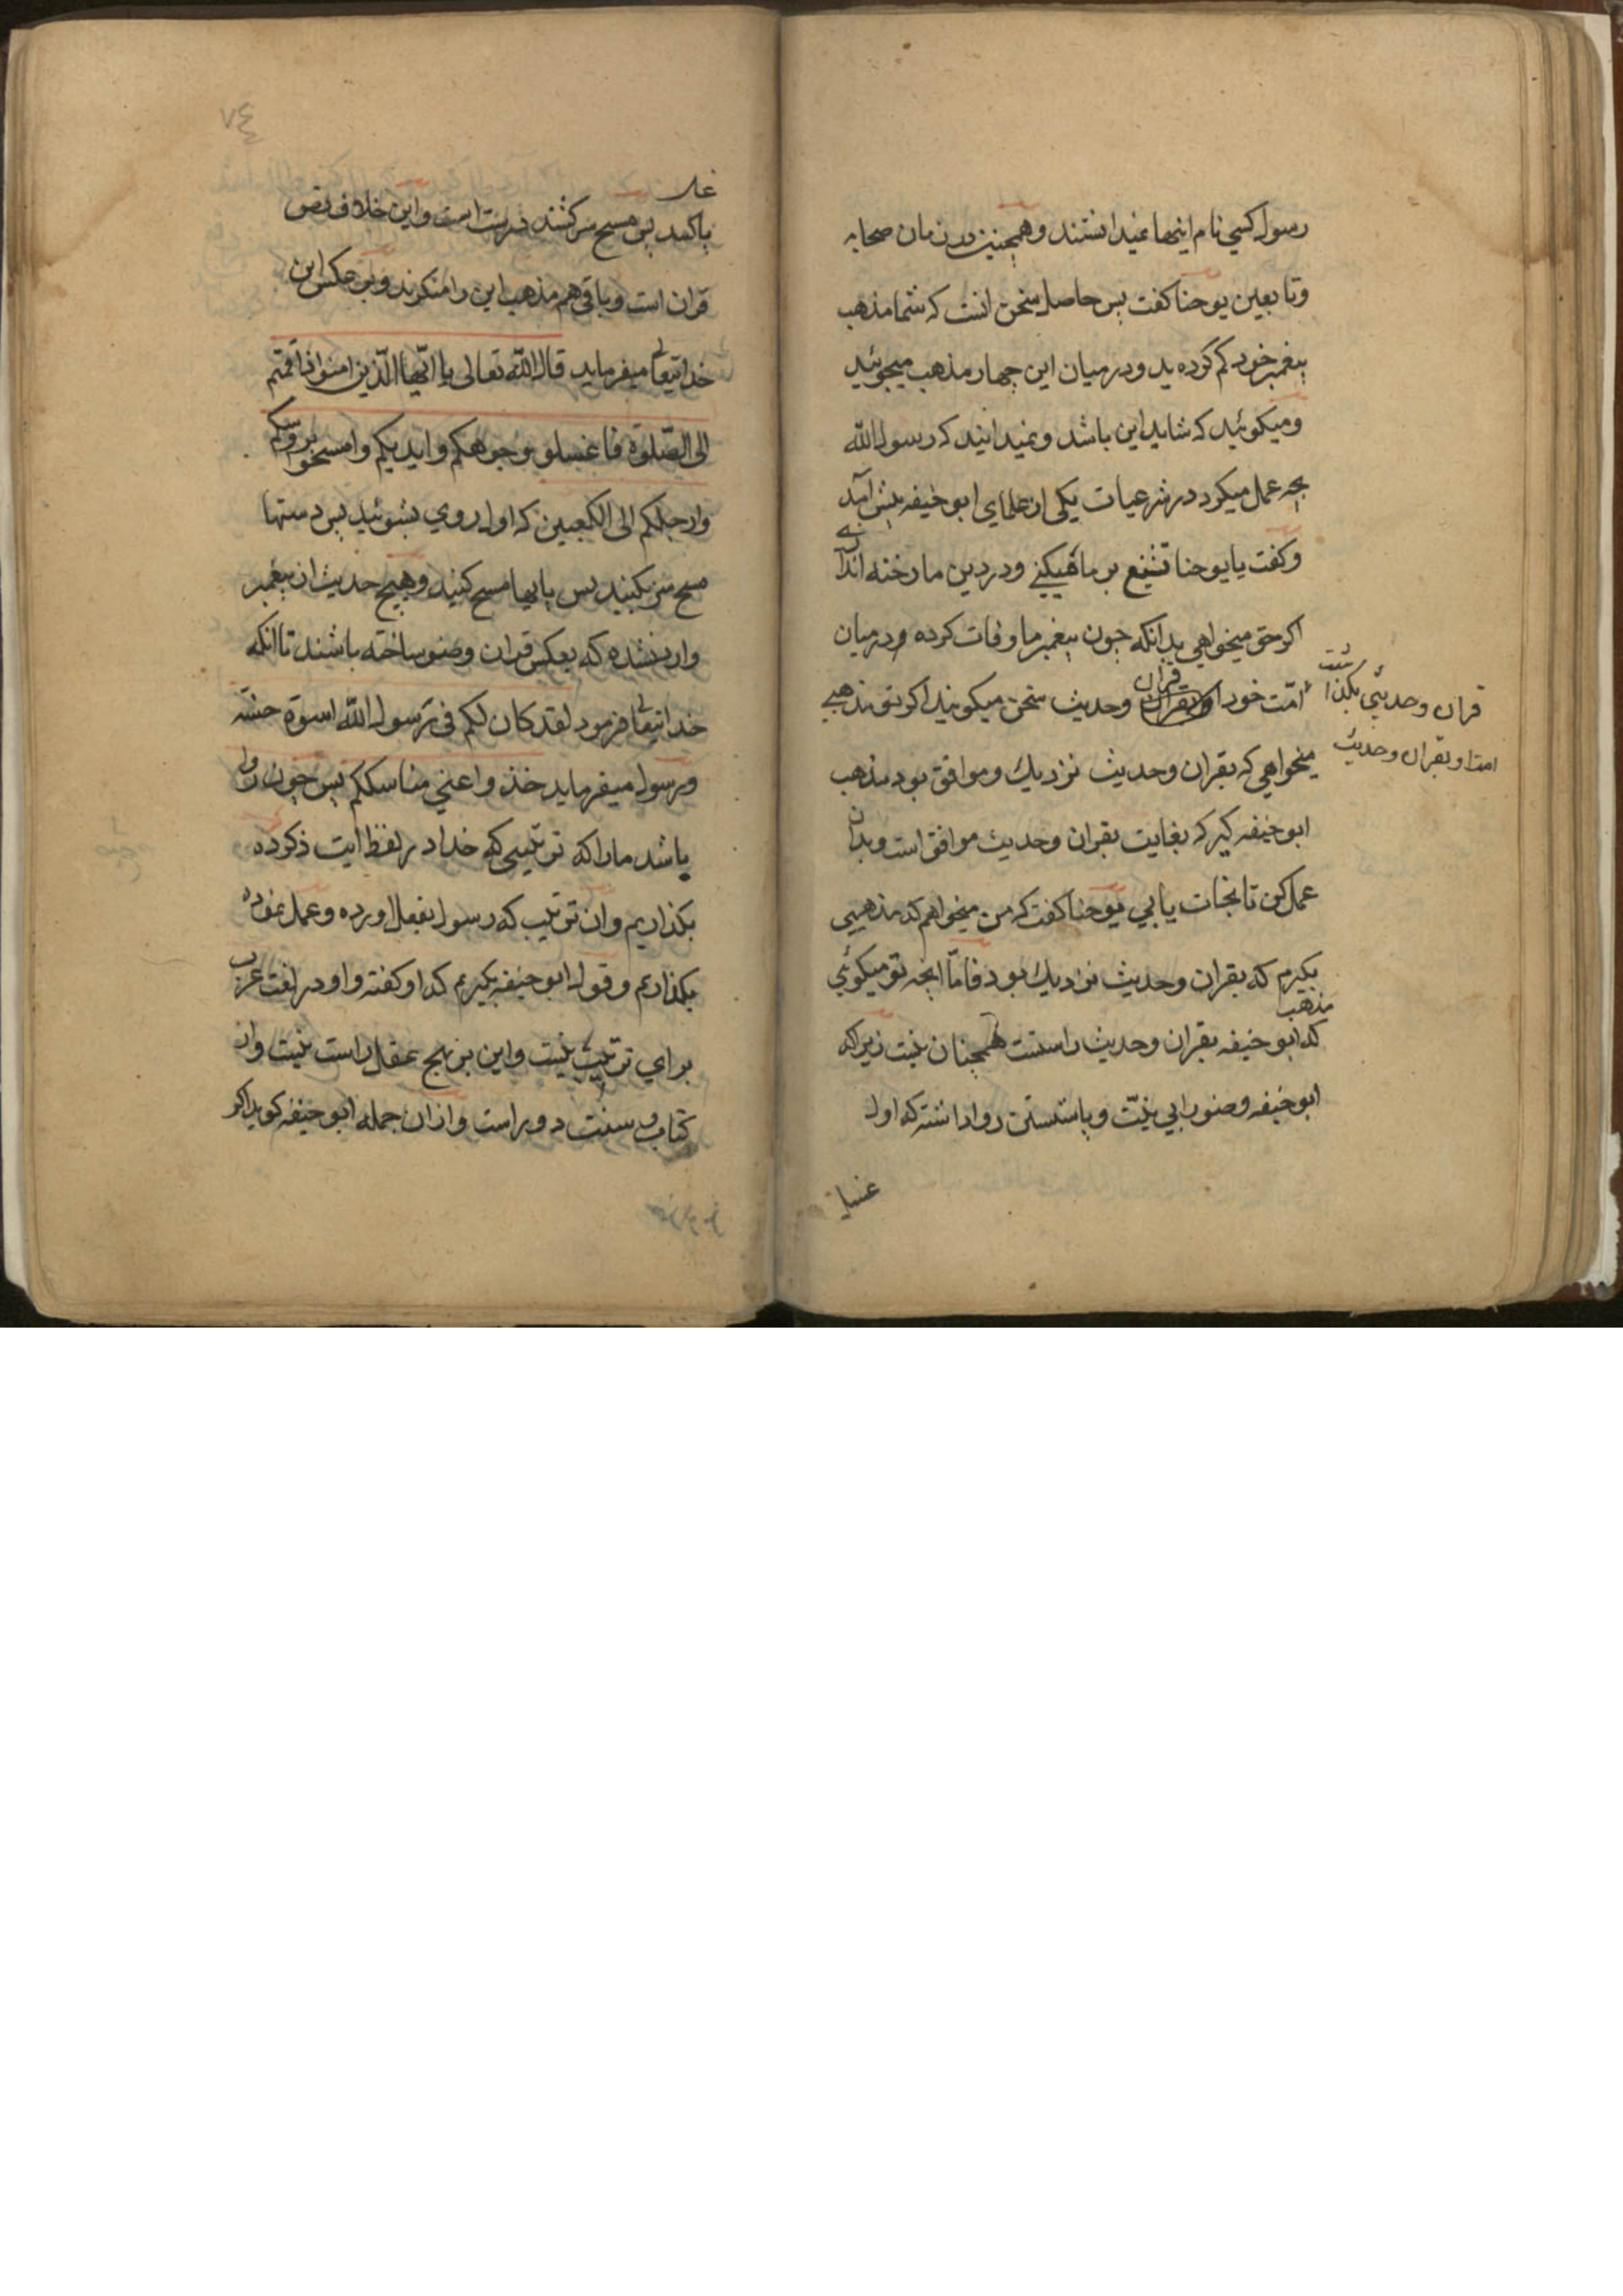 رسول کسی نام اینها نمیدانستند و همچنین در زمان صحابه
و تابعین یوحنا کفت پس حاصل سخن انست که شما مذهب
پیغمبر خود کم کرده‌ید و در میان این چهار مذهب میجوئید
و میکوئید که شاید این باشد و نمیدانید که رسول الله
بچه عمل میکرد در شرعیات یکی از علمای ابو حنیفه پیش آمد
و کفت یا یوحنا تشنیع بر ما میکنی و در دین ما رخنه اندازی
اکر حق میخواهی بدانکه چون پیغمبر ما وفات کرده و در میان
امّت خود او بقران قران و حدیث سخن میکویند اکر تو مذهبی
قران و حدیثی بکذاشت
امت او بقران و حدیث
میخواهی که بقران و حدیث نزدیك و موافق بود مذهب
ابو حنیفه کیر که بغایت بقران و حدیث موافق است و بدان
عمل کن تا نجات یابی یوحنا کفت که من میخواهم که مذهبی
بکیرم که بقران و حدیث نزدیك بود فامّا انچه تو میکوئی
که مذهب ابو حنیفه بقران و حدیث راستست همچنان نیست زیراکه
ابو حنیفه وضو را بی نیّت و پا شستن روا داشته که اول
غسل
پا کنند پس مسح سر کشند درست است و این خلاف نص
قران است و باقی هم مذهب این را منکرند و بر عکس این
خدایتعالی میفرماید قال الله تعالی یا ایّها الّذین امنوا اذا قمتم
الی الصّلوة فاغسلو وجوهکم و ایدیکم و امسحوا بروسکم
و ارجلکم الی الکعبین که اول روی بشوئید پس دستها
مسح سر بکنید پس پایها مسح کنید و هیچ حدیث از پیغمبر
وارد نشده که بعکس قران وضو ساخته باشند تا انکه
خدایتعالی فرمود لقد کان لکم فی رسول الله اسوة حسنة
و رسول میفرماید خذوا عنی مناسککم پس چون روا
باشد ما را که ترتیبی که خدا در لفظ ایت ذکر کرده
بکذاریم و ان ترتیب که رسول بفعل اورده و عمل نموده
بکذاریم و قول ابو حنیفه بکیریم که او کفته واو در لغت عرب
برای ترتیب نیست و این بر نهج عقل راست نیست و از
کتاب و سنت دور است و از ان جمله ابو حنیفه کوید اکر